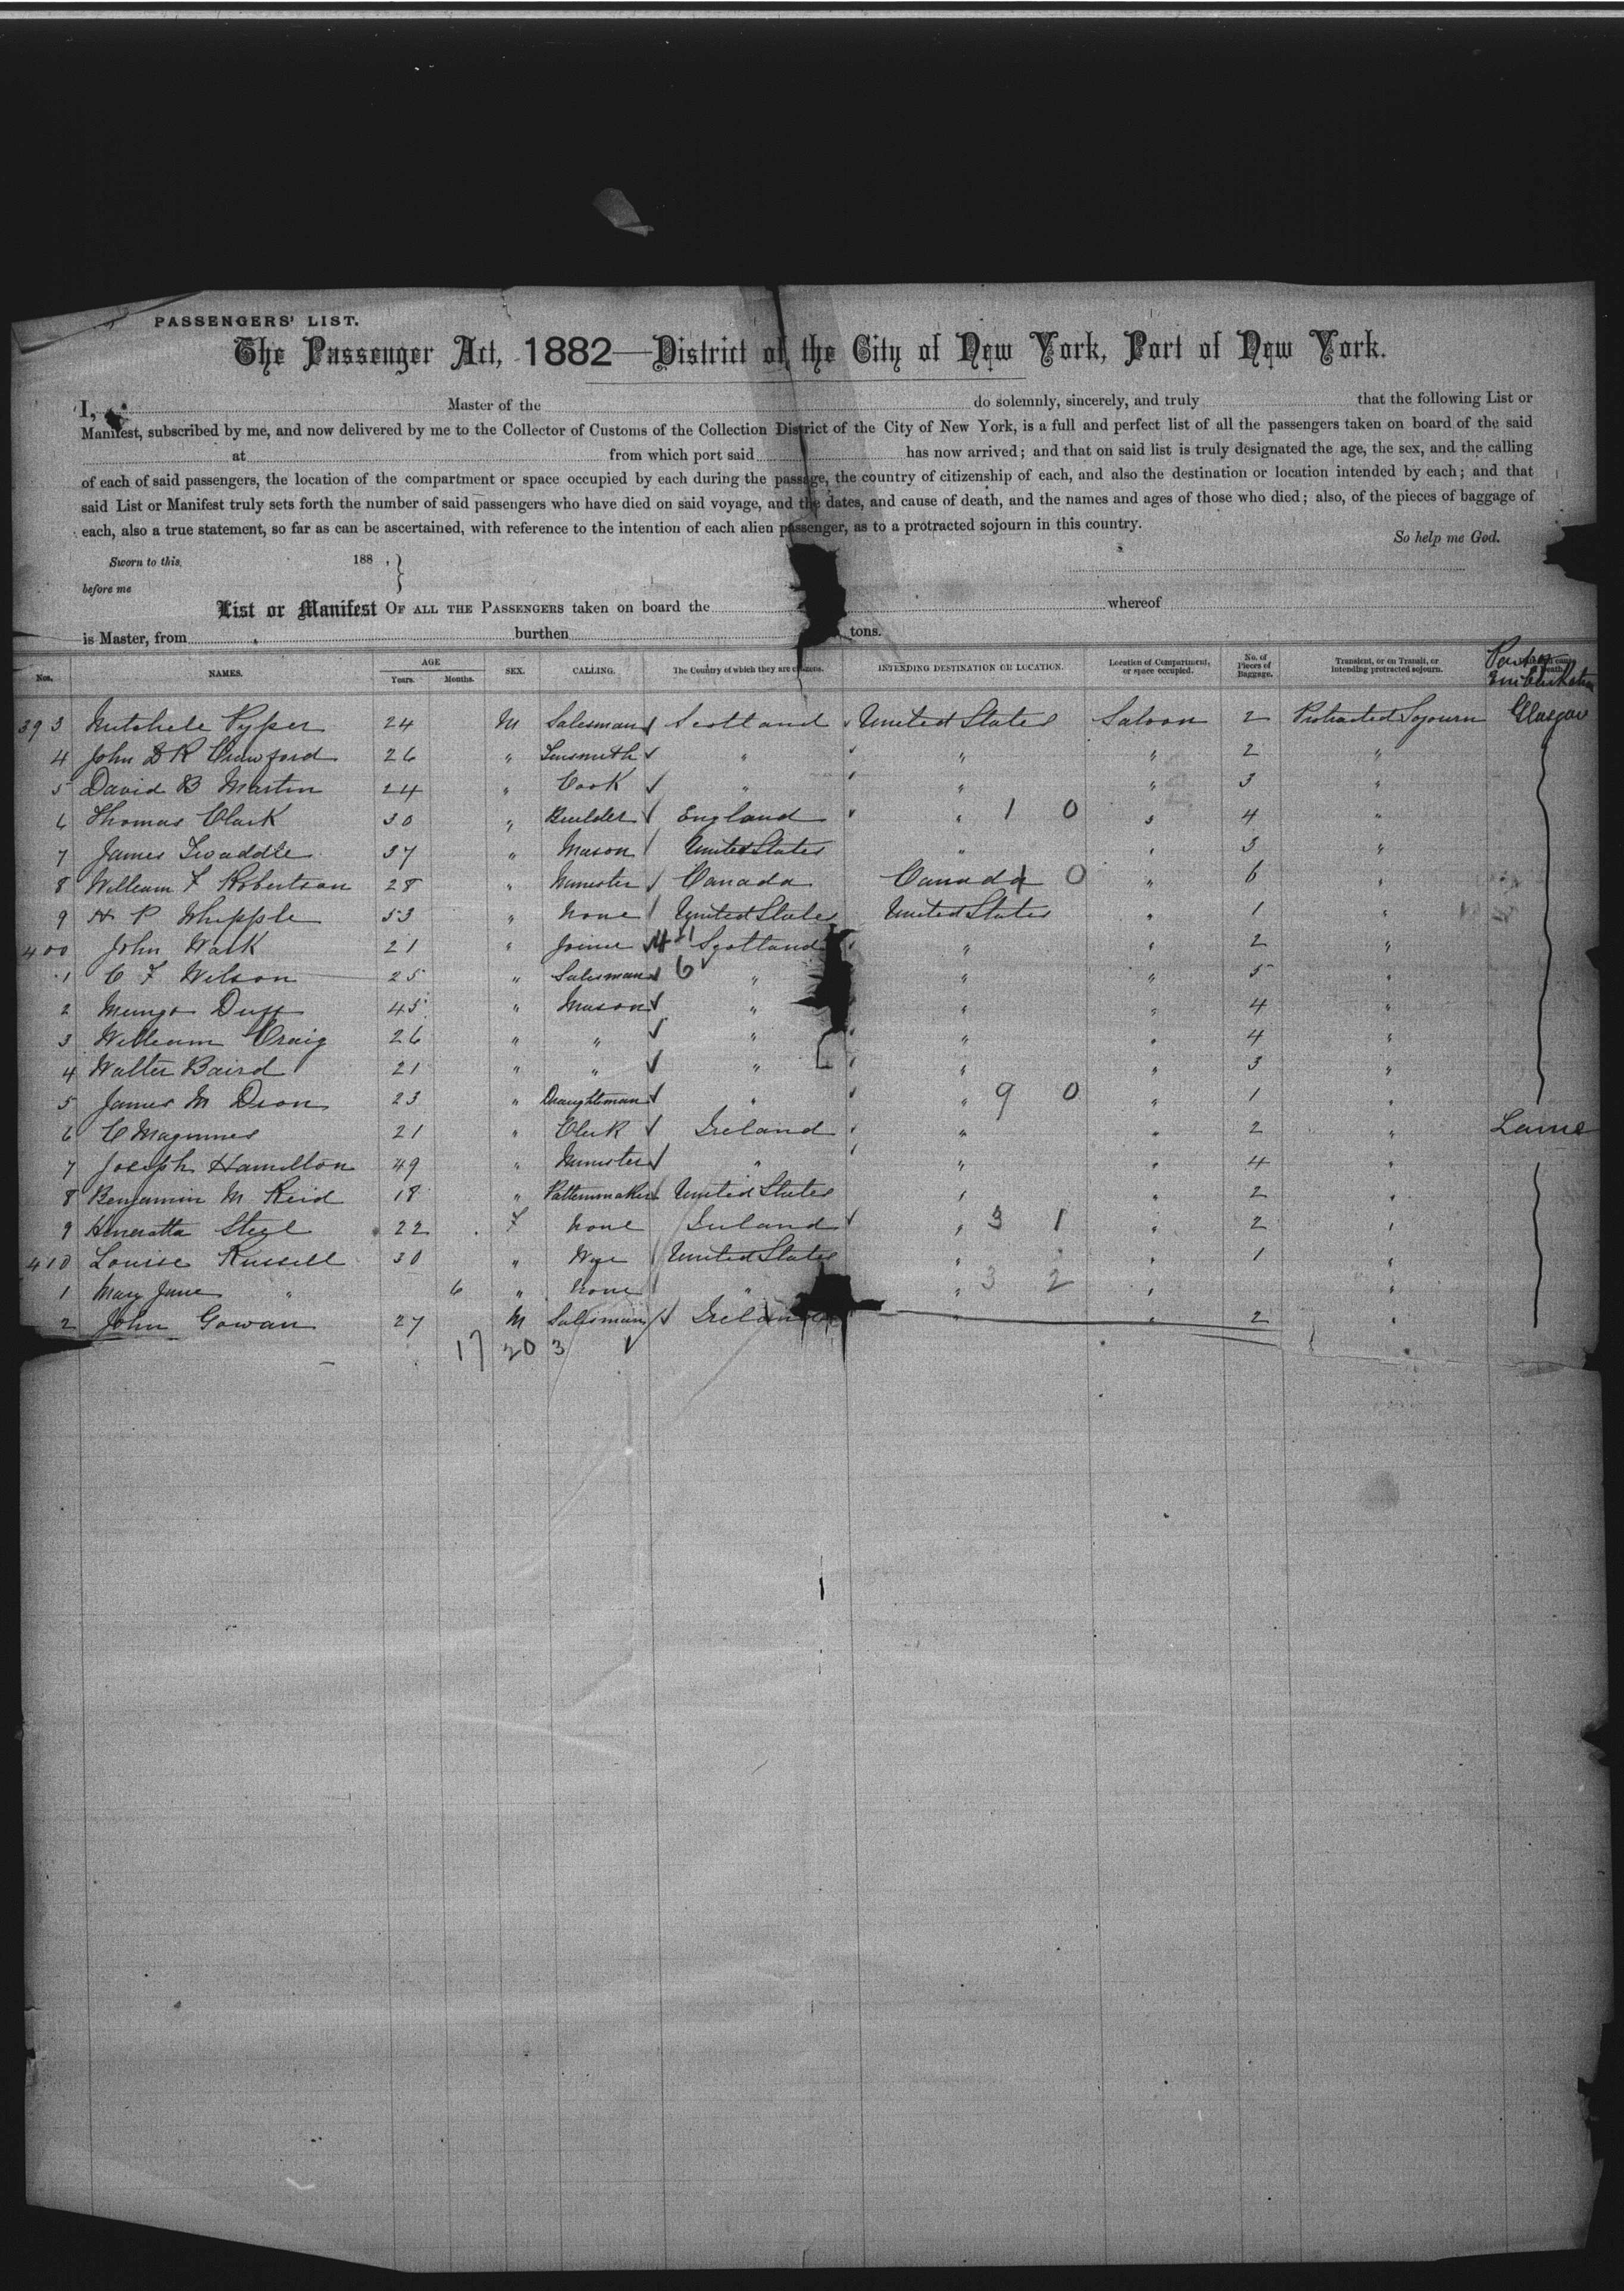 PASSENGERS' LIST.
The Passenger Act, 1882—District of the City of New York, Port of New York.
I, Master of the do solemnly, sincerely, and truly that the following List or
Manifest, subscribed by me, and now delivered by me to the Collector of Customs of the Collection District of the City of New York, is a full and perfect list of all the passengers taken on board of the said
at from which port said has now arrived; and that on said list is truly designated the age, the sex, and the calling
of each of said passengers, the location of the compartment or space occupied by each during the passage, the country of citizenship of each, and also the destination or location intended by each; and that
said List or Manifest truly sets forth the number of said passengers who have died on said voyage, and the dates, and cause of death, and the names and ages of those who died; also, of the pieces of baggage of
each, also a true statement, so far as can be ascertained, with reference to the intention of each alien passenger, as to a protracted sojourn in this country.
So help me God.
Sworn to this, 188 , }
before me
List or Manifest OF ALL THE PASSENGERS taken on board the whereof
is Master, from burthen tons.
Nos. NAMES. AGE Years. Months. SEX. CALLING. The Country of which they are citizens. INTENDING DESTINATION OR LOCATION. Location of Compartment, or space occupied. No. of Pieces of Baggage. Transient, or on Transit, or intending protracted sojourn. Port of Embarkation
393 Mitchele Pyper 24 M Salesman Scotland United States Saloon 2 Protracted Sojourn Glasgow
4 John D R Crawford 26 " Tinsmith " " " 2 "
5 David B Martin 24 " Cook " " " 3 "
6 Thomas Clark 30 " Builder England " 1 0 " 4 "
7 James Twaddle 37 " Mason United States " " 3 "
8 William F Robertson 28 " Minister Canada Canada 1 0 " 6 "
9 H P Whipple 53 " None United States United States " 1 "
400 John Wark 21 " Joiner Scotland " " 2 "
1 C F Wilson 25 " Salesman 6 " " " 5 "
2 Mungo Duff 45 " Mason " " " 4 "
3 William Craig 26 " " " " " 4 "
4 Walter Baird 21 " " " " " 3 "
5 James M Dron 23 " Draughtsman " " 9 0 " 1 "
6 C Maginnes 21 " Clerk Ireland " " 2 " Larne
7 Joseph Hamilton 49 " Minister " " " 4 "
8 Benjamin M Reid 18 " Patternmaker United States " " 2 "
9 Henrietta Steel 22 F None Ireland " 3 1 " 2 "
410 Louise Russell 30 " Wife United States " " 1 "
1 Mary Jane " 6 " None " " 3 2 " "
2 John Gowan 27 M Salesman Ireland " " 2 "
17 20 3